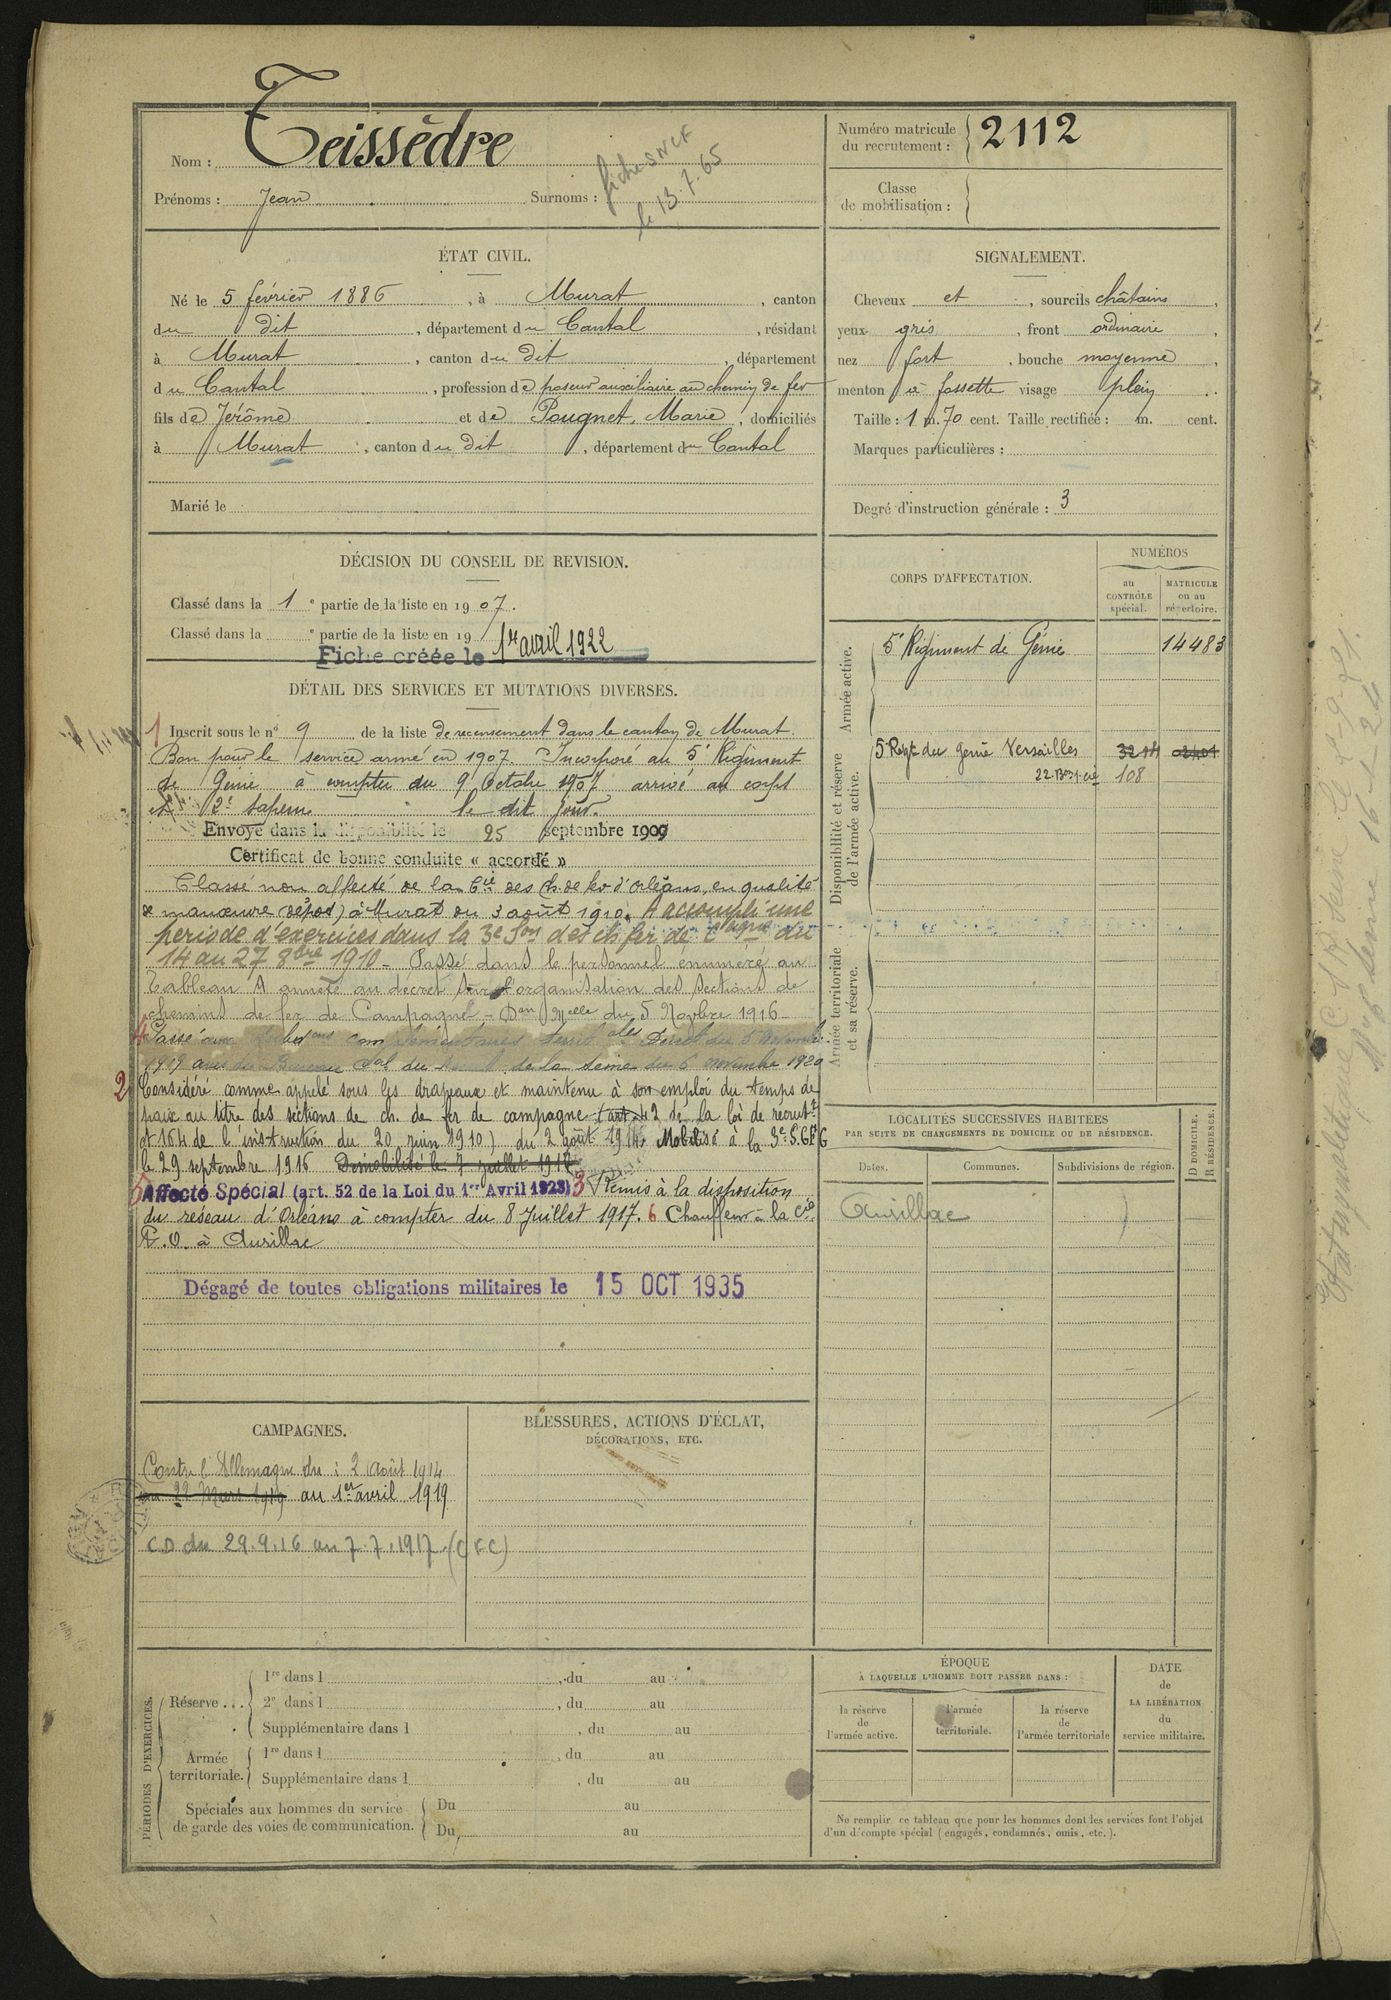 Nom : Teissèdre
Prénoms : Jean Surnoms :
fiche SNCF
le 13.7.65
Numéro matricule du recrutement : 2112
Classe de mobilisation :
ÉTAT CIVIL.
Né le 5 février 1886, à Murat, canton
du dit, département du Cantal, résidant
à Murat, canton du dit, département
du Cantal, profession de poseur auxiliaire au chemin de fer
fils de Jérôme et de Pougnet, Marie, domiciliés
à Murat, canton du dit, département du Cantal
Marié le
SIGNALEMENT.
Cheveux et, sourcils châtains,
yeux gris, front ordinaire,
nez fort, bouche moyenne,
menton à fossette visage plein
Taille : 1 m. 70 cent. Taille rectifiée : m. cent.
Marques particulières :
Degré d'instruction générale : 3
DÉCISION DU CONSEIL DE REVISION.
Classé dans la 1e partie de la liste en 1907.
Classé dans la e partie de la liste en 19
Fiche créée le 1er avril 1922
DÉTAIL DES SERVICES ET MUTATIONS DIVERSES.
1 Inscrit sous le n° 9 de la liste de recensement dans le canton de Murat.
Bon pour le service armé en 1907. Incorporé au 5e Régiment
de Génie à compter du 9 Octobre 1907 arrivé au corps
et 2e sapeur le dit jour.
Envoyé dans la disponibilité le 25 septembre 1909
Certificat de bonne conduite « accordé »
Classé non affecté de la Cie des ch. de fer d'Orléans, en qualité
de manœuvre (dépôt) à Murat du 3 août 1910. A accompli une
période d'exercices dans la 3e Son des ch fer de Cagne du
14 au 27 8bre 1910 - Passé dans le personnel énuméré au
Tableau A annexé au décret sur l'organisation des sections de
chemins de fer de Campagne - Don Melle du 5 Novbre 1916 -
4 Passé aux Subdons complémentaires territles Décret du 5 novembre
1919 avis du Bureau de la Seine du 6 novembre 1920
2 Considéré comme appelé sous les drapeaux et maintenu à son emploi du temps de
paix au titre des sections de ch. de fer de campagne (art. 42 de la loi de recrutt
et 164 de l'instruction du 20 juin 1910) du 2 août 1914. Mobilisé à la 3e S.C.F.C
le 29 septembre 1916 Démobilisé le 7 juillet 1917
5 Affecté Spécial (art. 52 de la Loi du 1er Avril 1923) 3 Remis à la disposition
du réseau d'Orléans à compter du 8 Juillet 1917. 6 Chauffeur à la Cie
P.O. à Aurillac
Dégagé de toutes obligations militaires le 15 OCT 1935
CORPS D'AFFECTATION.
NUMÉROS
au CONTRÔLE spécial.
MATRICULE ou au répertoire.
Armée active.
5e Régiment de Génie 14483
Disponibilité et réserve de l'armée active.
5 Regt du Génie Versailles
22 Bon 1. cie 108
Armée territoriale et sa réserve.
LOCALITÉS SUCCESSIVES HABITÉES
PAR SUITE DE CHANGEMENTS DE DOMICILE OU DE RÉSIDENCE.
Dates. Communes. Subdivisions de région.
D DOMICILE. R RÉSIDENCE.
Aurillac
CAMPAGNES.
Contre l'Allemagne du : 2 Août 1914
au 22 Mars 1919 au 1er avril 1919
CD du 29.9.16 au 7.7.1917 (CFC)
BLESSURES, ACTIONS D'ÉCLAT,
DÉCORATIONS, ETC.
PÉRIODES D'EXERCICES.
Réserve...
1re dans l , du au
2e dans l , du au
Supplémentaire dans l , du au
Armée territoriale.
1re dans l , du au
Supplémentaire dans l , du au
Spéciales aux hommes du service
de garde des voies de communication.
Du au
Du au
ÉPOQUE
À LAQUELLE L'HOMME DOIT PASSER DANS :
la réserve de l'armée active.
l'armée territoriale.
la réserve de l'armée territoriale
DATE de LA LIBÉRATION du service militaire.
Ne remplir ce tableau que pour les hommes dont les services font l'objet
d'un décompte spécial (engagés, condamnés, omis, etc.).